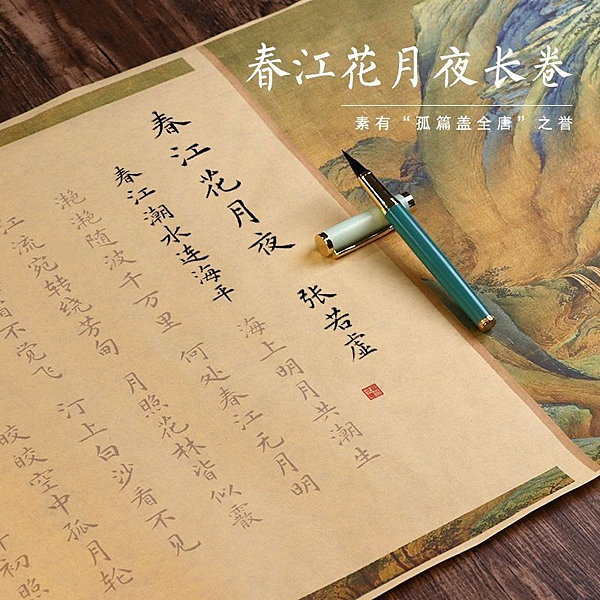 春江花月夜长卷
素有“孤篇盖全唐”之誉
春江花月夜
张若虚
春江潮水连海平 海上明月共潮生
滟滟随波千万里 何处春江无月明
江流宛转绕芳甸 月照花林皆似霰
不觉飞 汀上白沙看不见
皎皎空中孤月轮
初照